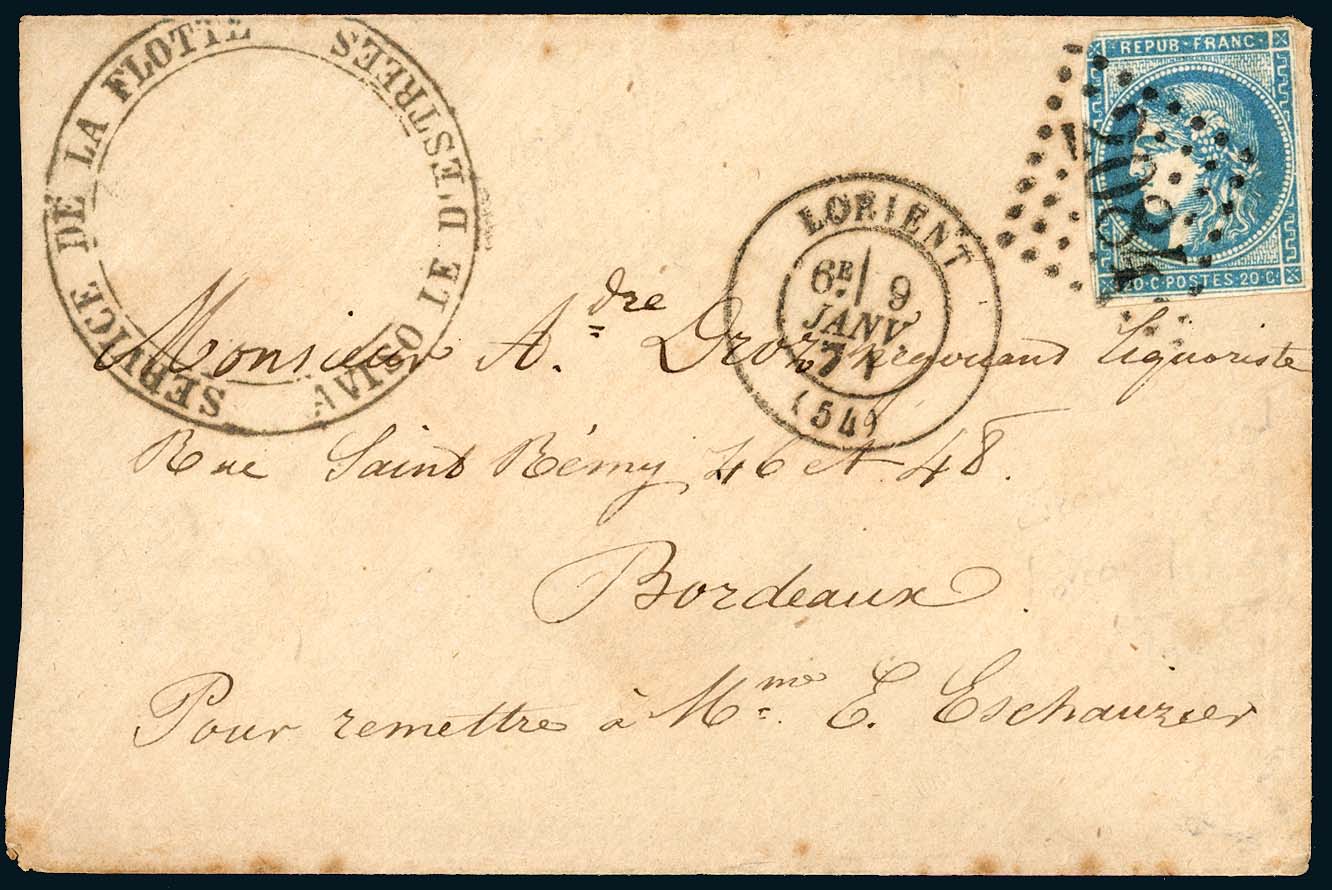 SERVICE DE LA FLOTTE
AVISO LE D'ESTRÉES
REPUB·FRANC
20·C·POSTES·20·C
LORIENT
6E 9
JANV
71
(54)
Monsieur A.dre Droz, négociant liquoriste
Rue Saint Rémy 46 et 48.
Bordeaux
Pour remettre à Mme E. Eschauzier